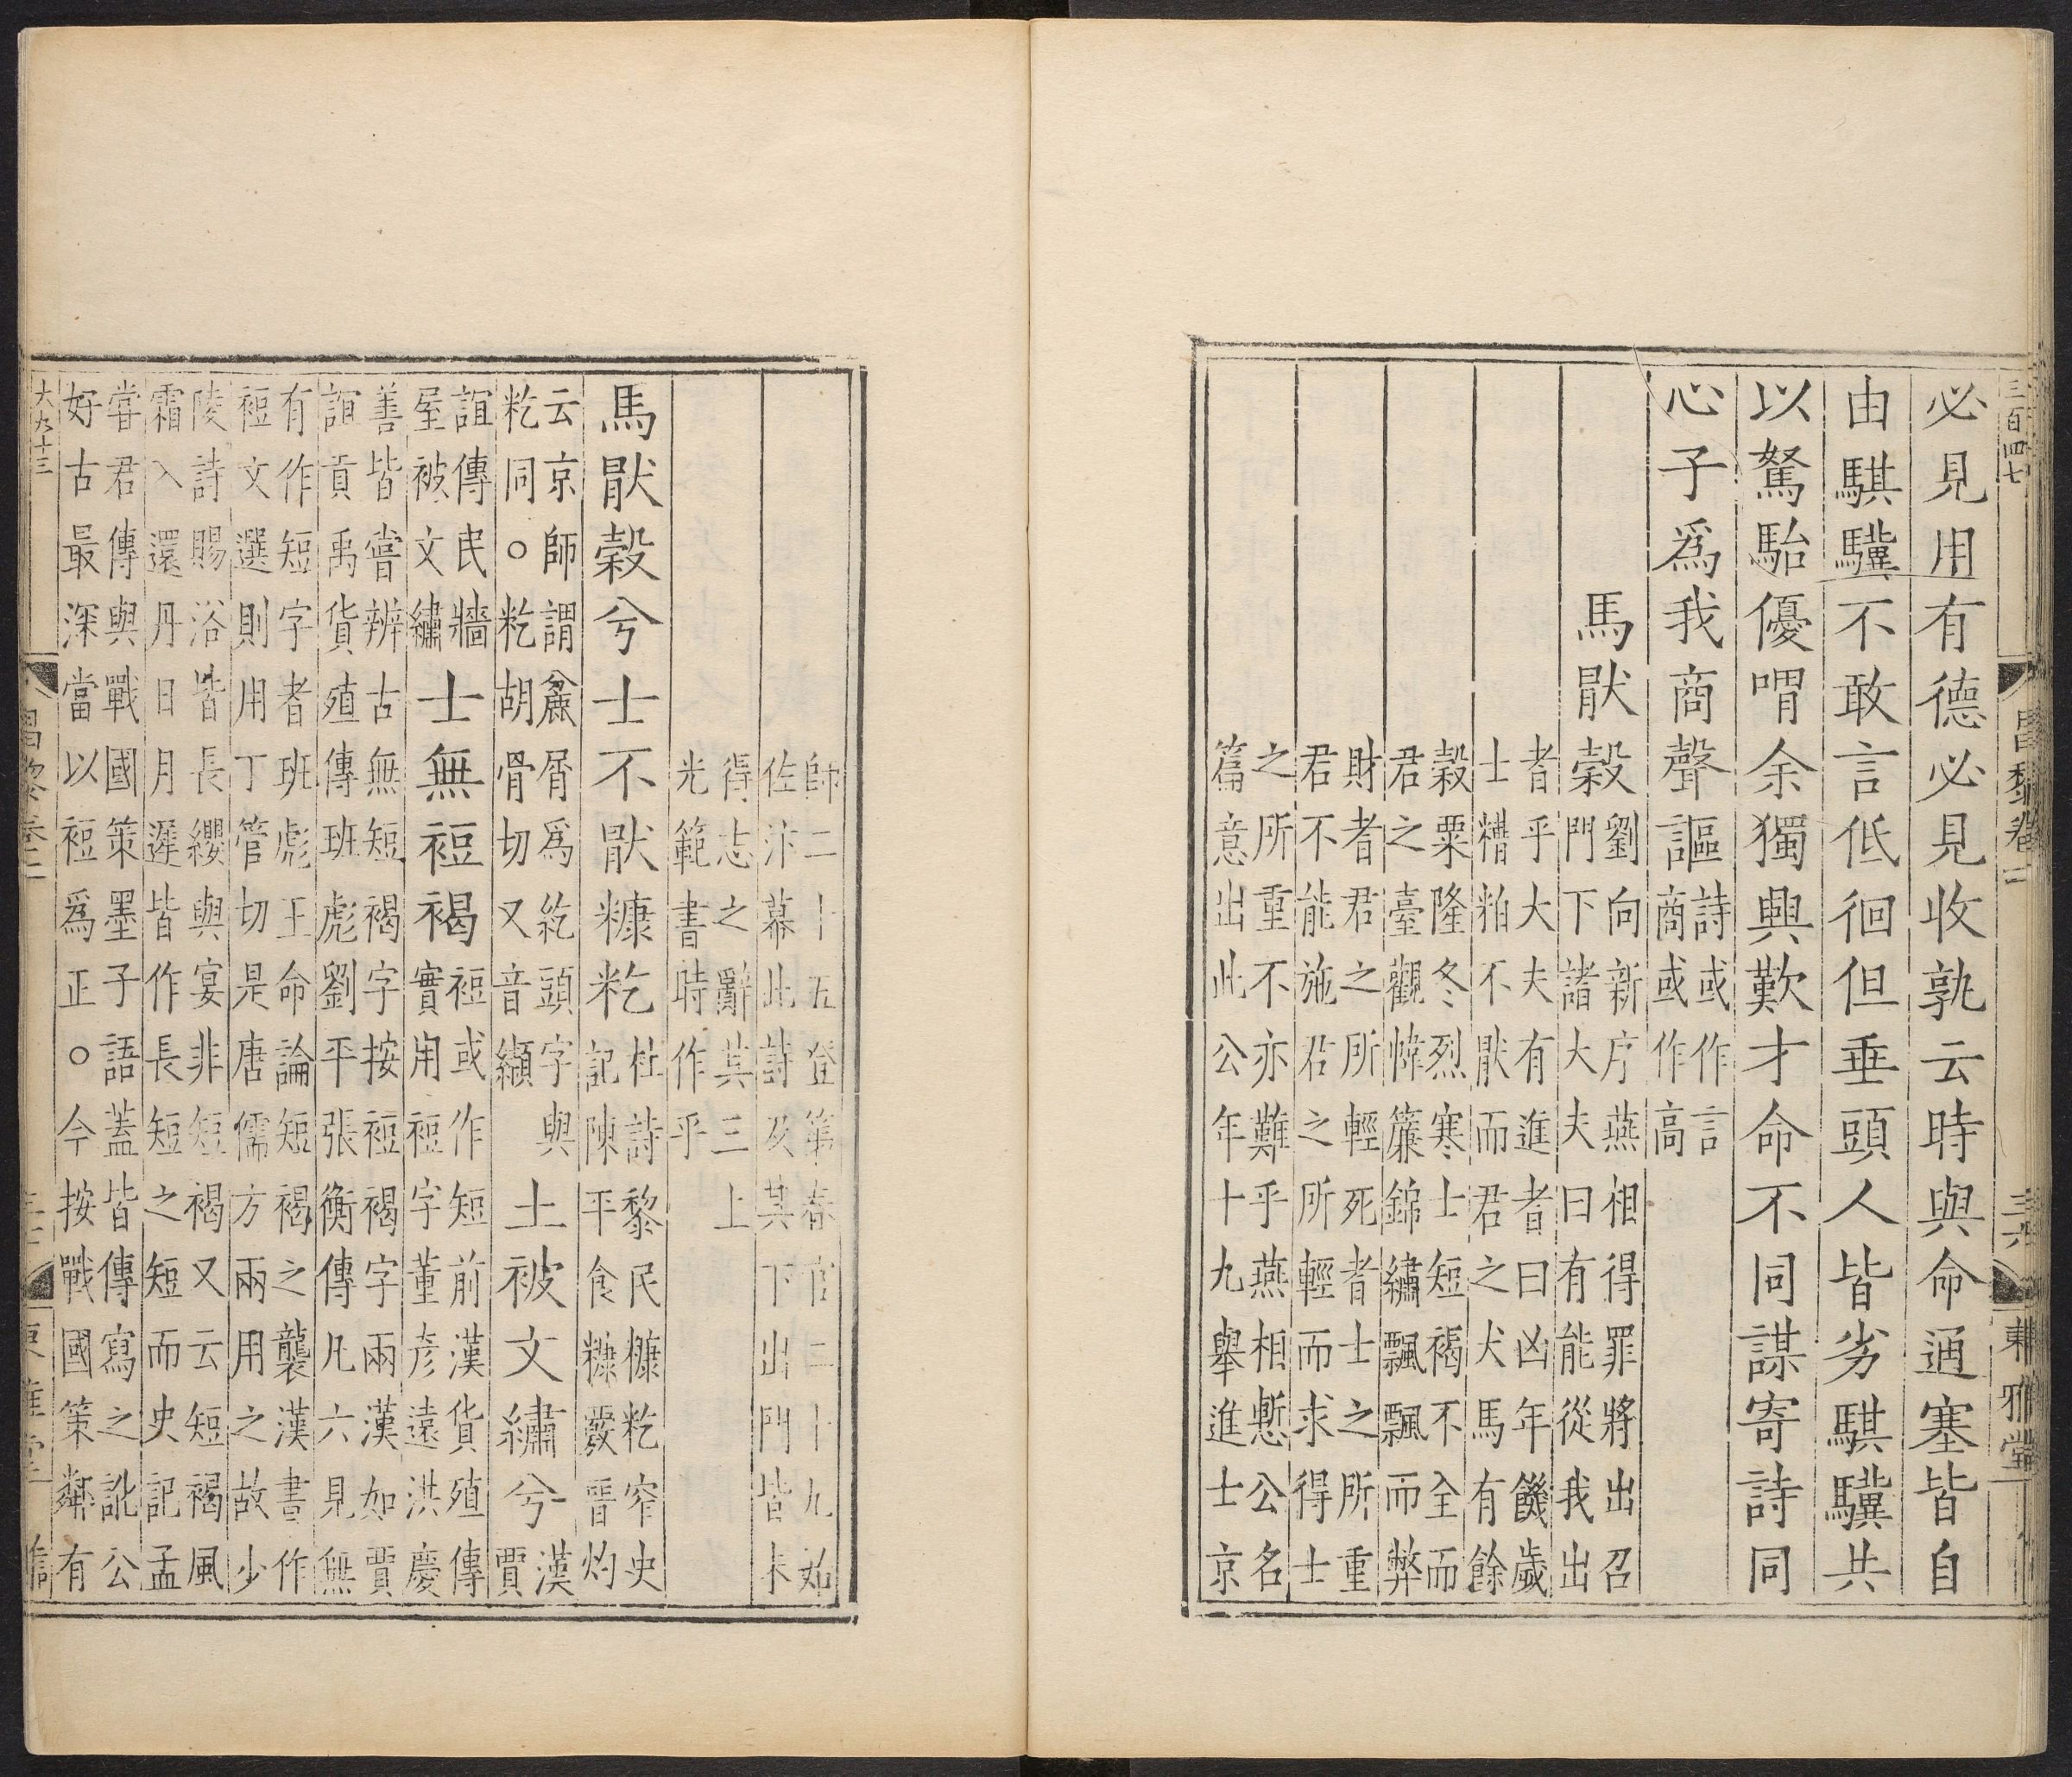 三百四七
昌黎卷二
三六
東雅堂
必見用有德必見收孰云時與命通塞皆自
由騏驥不敢言低徊但垂頭人皆劣騏驥共
以駑駘優喟余獨興歎才命不同謀寄詩同
心子爲我商聲謳詩或作言
商或作高
馬猒穀劉向新序燕相得罪將出召
門下諸大夫曰有能從我出
者乎大夫有進者曰凶年饑歲
士糟粕不猒而君之犬馬有餘
穀粟隆冬烈寒士短褐不全而
君之臺觀幃簾錦繡飄飄而弊
財者君之所輕死者士之所重
君不能施君之所輕而求得士
之所重不亦難乎燕相慙公名
篇意出此公年十九舉進士京
師二十五登第春官二十九始
佐汴幕此詩及其下出門皆未
得志之辭其三上
光範書時作乎
馬猒穀兮士不猒糠籺杜詩黎民糠籺窄史
記陳平食糠覈晉灼
云京師謂麄屑爲紇頭字與
籺同○籺胡骨切又音纈土被文繡兮漢
賈
誼傳民牆
屋被文繡士無裋褐裋或作短前漢貨殖傳
實用裋字董彥遠洪慶
善皆嘗辨古無短褐字按裋褐字兩漢如賈
誼貢禹貨殖傳班彪劉平張衡傳凡六見無
有作短字者班彪王命論短褐之襲漢書作
裋文選則用丁管切是唐儒方兩用之故少
陵詩賜浴皆長纓與宴非短褐又云短褐風
霜入還丹日月遲皆作長短之短而史記孟
嘗君傳與戰國策墨子語蓋皆傳寫之訛公
好古最深當以裋爲正○今按戰國策鄰有
大九十三
昌黎卷二
東雅堂